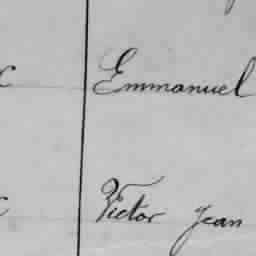 c Emmanuel
c Victor Jean